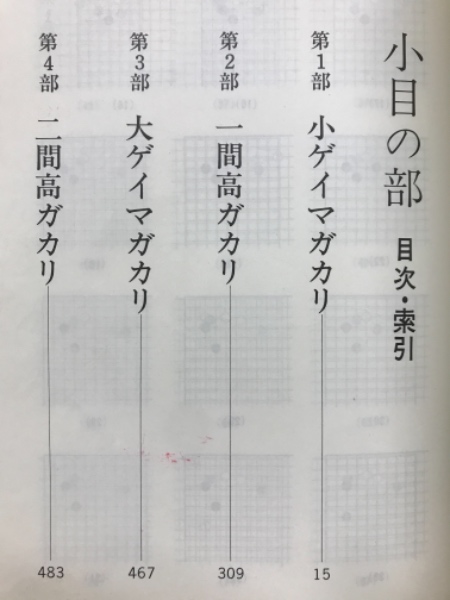 小目の部 目次・索引
第1部 小ゲイマガカリ 15
第2部 一間高ガカリ 309
第3部 大ゲイマガカリ 467
第4部 二間高ガカリ 483